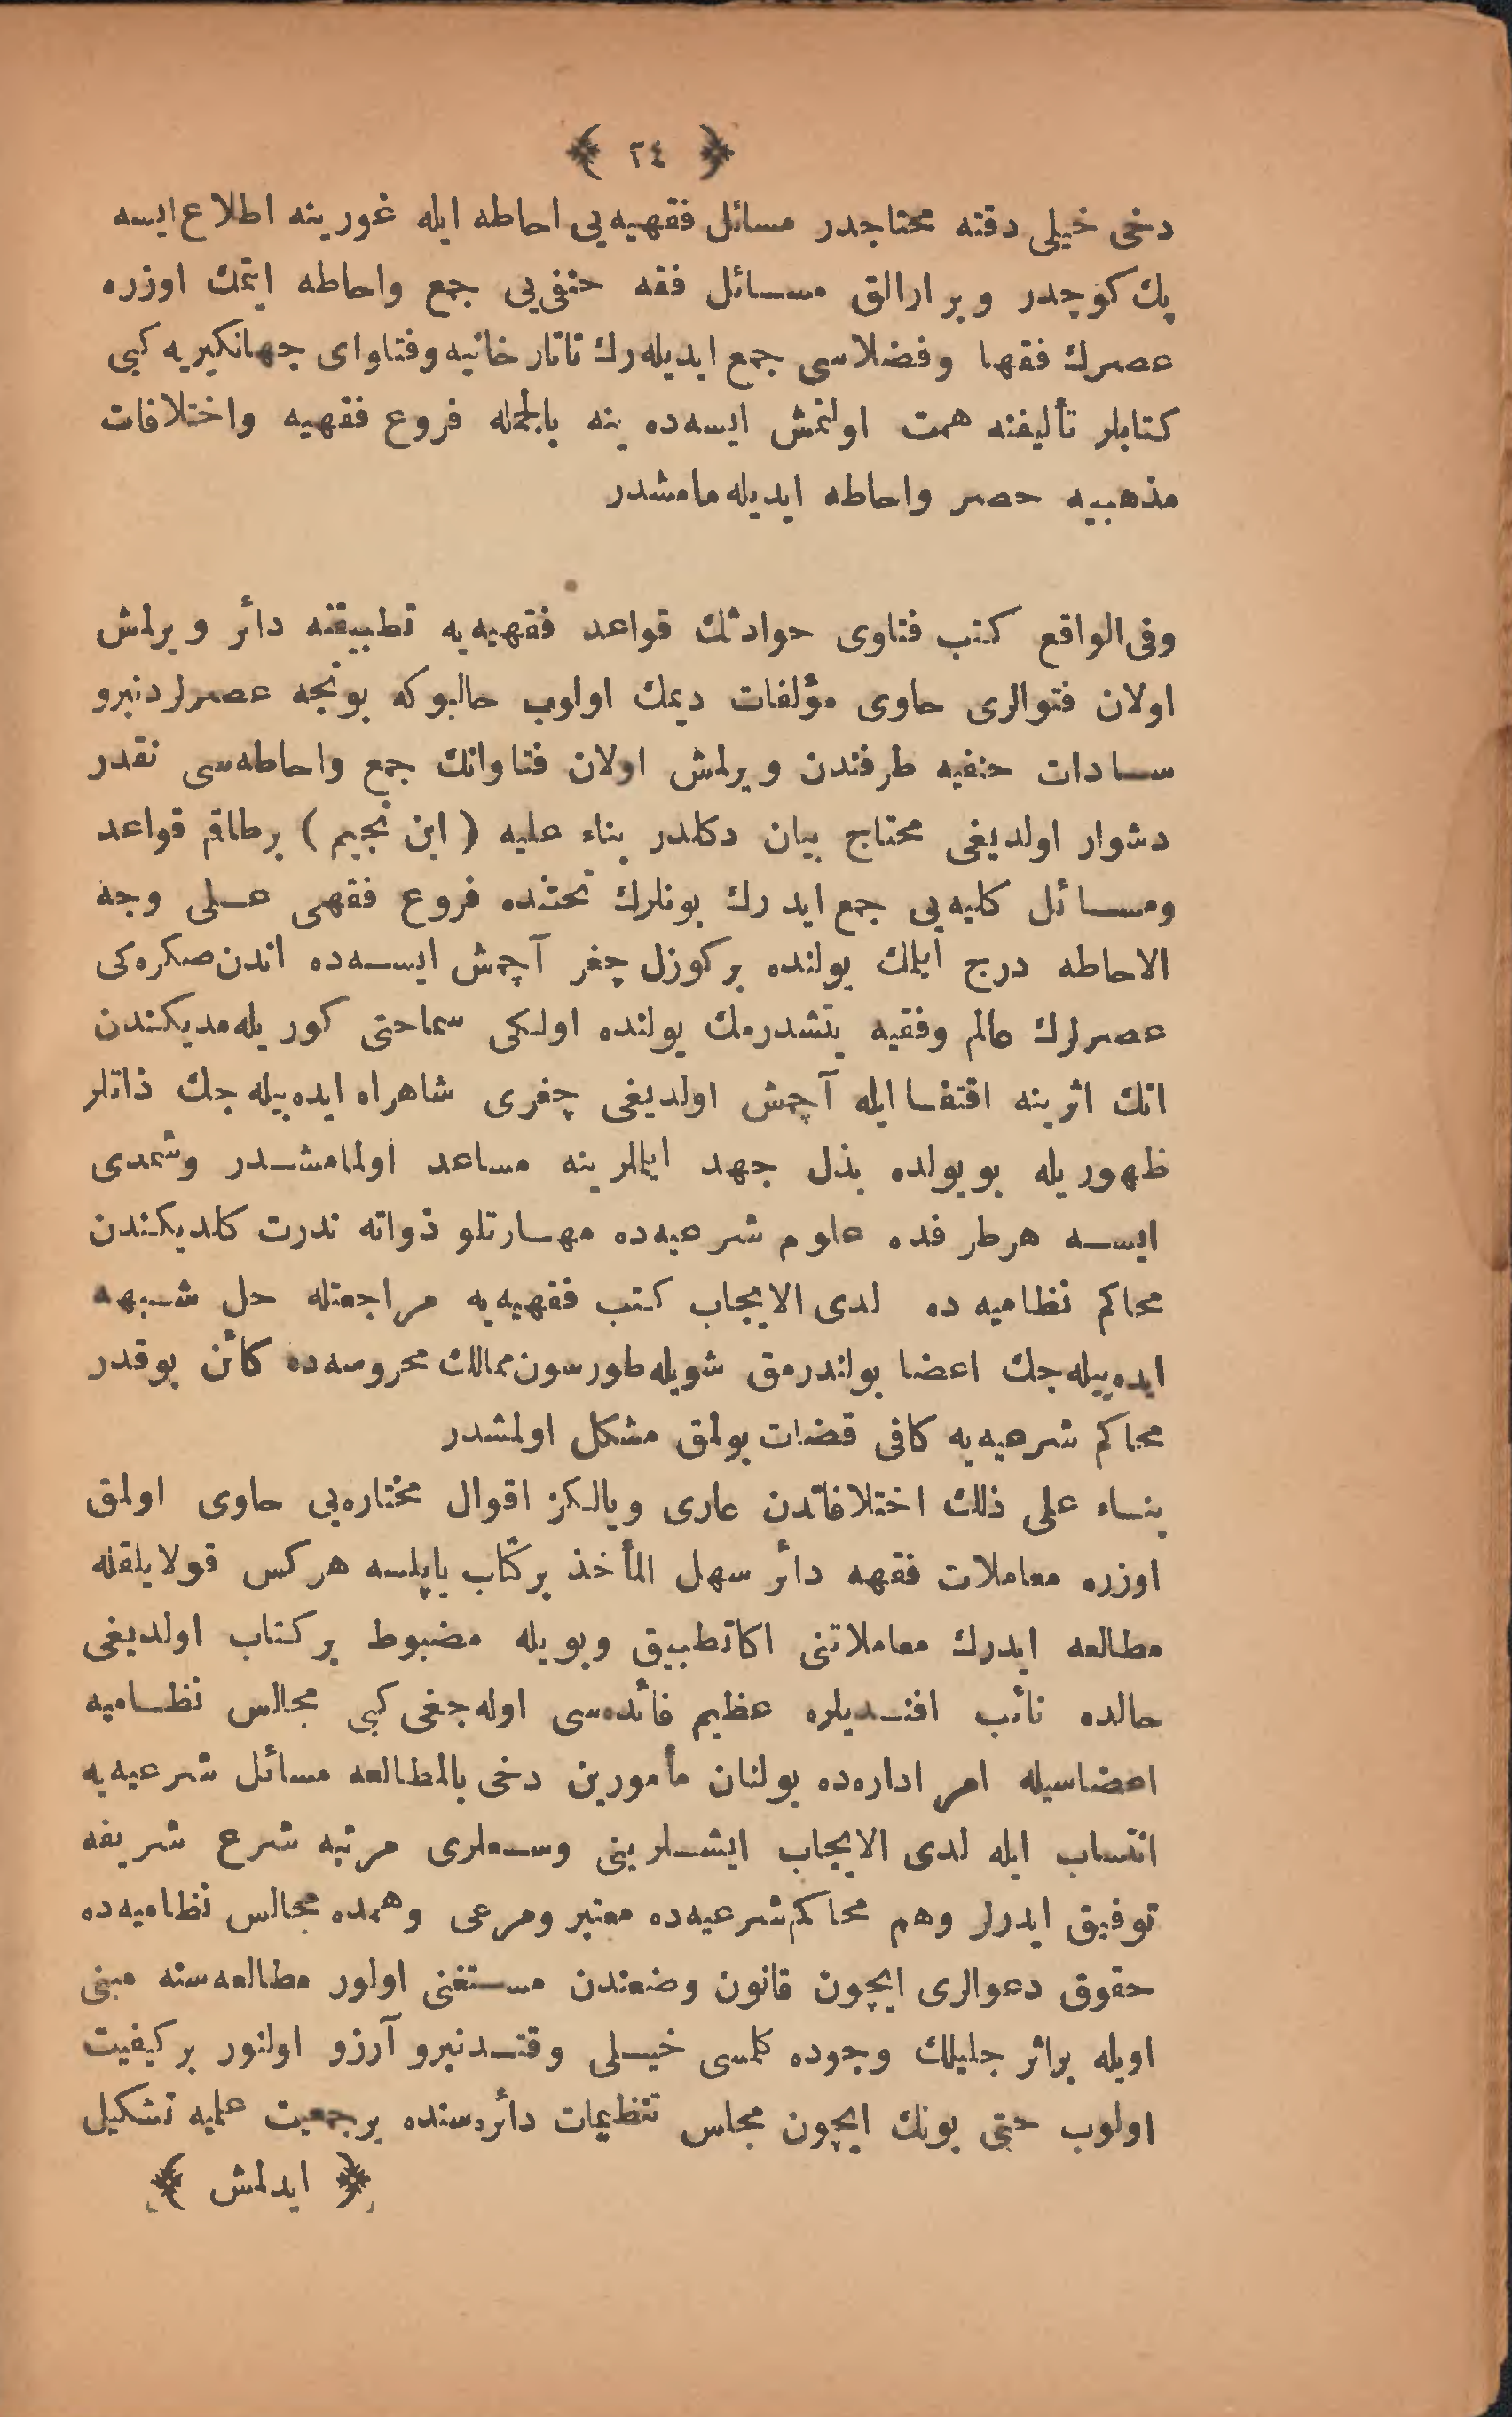 ﴿ ٢٤ ﴾
دخی خیلی دقته محتاجدر مسائل فقهیه‌یی احاطه ایله غورینه اطلاع ایسه
پك كوجدر و بر ارالق مســائل فقه حنفی‌یی جمع واحاطه ایتمك اوزره
عصرك فقها وفضلاسی جمع ایدیله‌رك تاتارخانیه وفتاوای جهانكیریه كبی
كتابلر تألیفنه همت اولنمش ایسه‌ده ینه بالجمله فروع فقهیه واختلافات
مذهبیه حصر واحاطه ایدیله‌مامشدر
وفی‌الواقع كتب فتاوی حوادثك قواعد فقهیه‌یه تطبیقنه دائر ویرلمش
اولان فتوالری حاوی مؤلفات دیمك اولوب حالبوكه بونجه عصرلردنبرو
ســادات حنفیه طرفندن ویرلمش اولان فتاوانك جمع واحاطه‌سی نقدر
دشوار اولدیغی محتاج بیان دكلدر بناء علیه ( ابن نجیم ) برطاقم قواعد
ومســائل كلیه‌یی جمع ایدرك بونلرك تحتنده فروع فقهی عــلی وجه
الاحاطه درج ایلمك یولنده بر كوزل چغر آچمش ایســه‌ده اندن صكره‌كی
عصرلرك عالم وفقیه یتشدرمك یولنده اولكی سماحتی كوریله‌مدیكندن
انك اثرینه اقتفــا ایله آچمش اولدیغی چغری شاهراه ایده‌بیله‌جك ذاتلر
ظهوریله بویولده بذل جهد ایلملرینه مساعد اولمامشــدر وشمدی
ایســه هرطرفده علوم شرعیه‌ده مهــارتلو ذواته ندرت كلدیكندن
محاكم نظامیه ده لدی الایجاب كتب فقهیه‌یه مراجعتله حل شــبهه
ایده‌بیله‌جك اعضا بولندرمق شویله‌طورسون ممالك محروسه‌ده كائن بوقدر
محاكم شرعیه‌یه كافی قضات بولمق مشكل اولمشدر
بنــاء علی ذلك اختلافاتدن عاری ویالكز اقوال مختاره‌یی حاوی اولمق
اوزره معاملات فقهه دائر سهل المأخذ بركتاب یاپلسه هركس قولایلقله
مطالعه ایدرك معاملاتنی اكاتطبیق وبویله مضبوط بر كتاب اولدیغی
حالده نائب افنــدیلره عظیم فائده‌سی اوله‌جغی كبی مجالس نظــامیه
اعضاسیله امر اداره‌ده بولنان مأمورین دخی بالمطالعه مسائل شرعیه‌یه
انتساب ایله لدی الایجاب ایشــلرینی وســعلری مرتبه شرع شریفه
توفیق ایدرلر وهم محاكم شرعیه‌ده معتبر ومرعی وهمده مجالس نظامیه‌ده
حقوق دعوالری ایچون قانون وضعندن مســتغنی اولور مطالعه‌سنه مبنی
اویله براثر جلیلك وجوده كلمسی خیــلی وقتــدنبرو آرزو اولنور بر كیفیت
اولوب حتی بونك ایچون مجلس تنظیمات دائره‌سنده برجمعیت علمیه تشكیل
﴿ ایدلمش ﴾